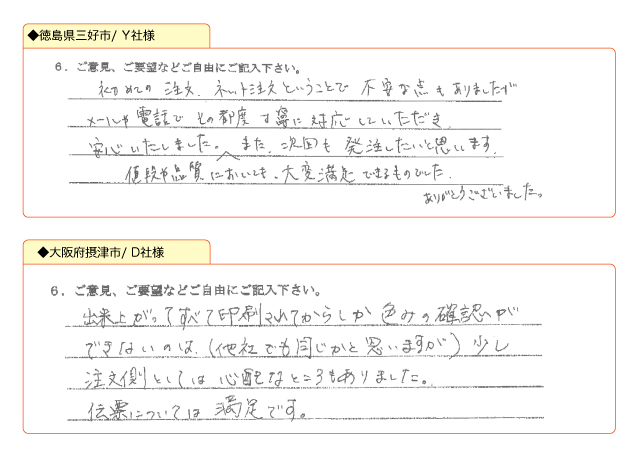 ◆徳島県三好市/ Y社様
6．ご意見、ご要望などご自由にご記入下さい。
初めての注文、ネット注文ということで不安な点もありましたが
メールや電話でその都度丁寧に対応していただき、
安心いたしました。また、次回も発注したいと思います。
値段や品質においても、大変満足できるものでした。
ありがとうございました。
◆大阪府摂津市/ D社様
6．ご意見、ご要望などご自由にご記入下さい。
出来上がってすべて印刷されてからしか色みの確認が
できないのは、(他社でも同じかと思いますが)少し
注文側としては心配なところもありました。
伝票については満足です。